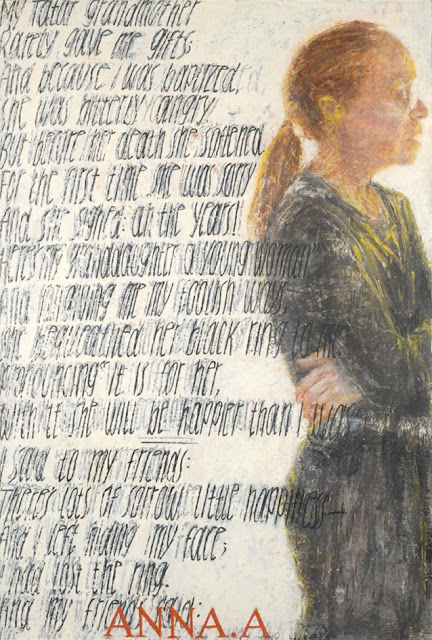 My Tatar grandmother
Rarely gave me gifts;
And because I was baptized,
She was bitterly angry.
But before her death she softened
For the first time she was sorry
And she sighed: oh the years!!
Here's my granddaughter a young woman"
And forgiving me my foolish ways
She bequeathed her black ring to me
Announcing "it is for her,
With it she will be happier than I was
I said to my friends:
There's lots of sorrow little happiness—
And I left hiding my face;
I had lost the ring.
And my friends said:
ANNA.A